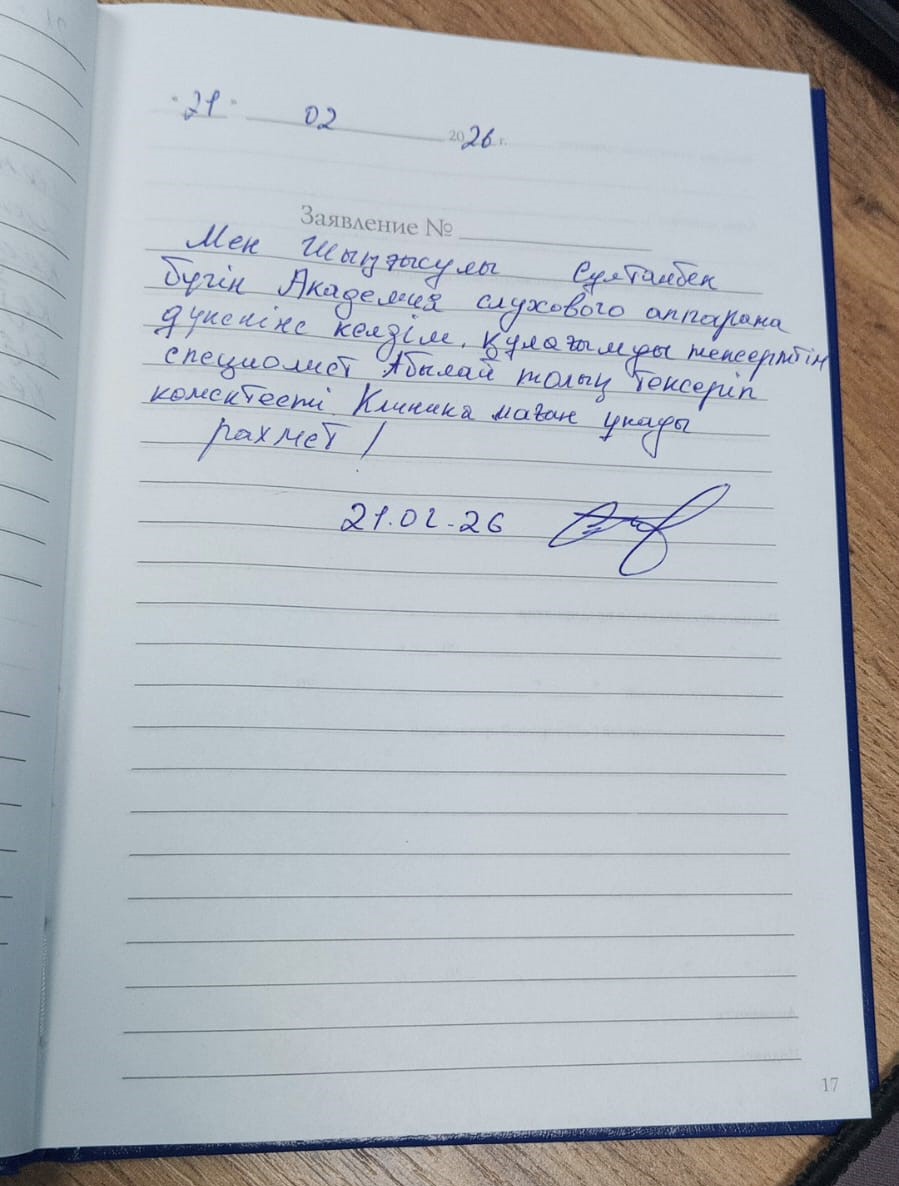 "21" 02 2026 г.
Заявление №
Мен Шыңғысұлы Султанбек
бүгін Академия слухового аппарана
дүкеніне келдім. Құлағымды тексертіп
специалист Абылай толық тексеріп
комектесті Клиника маған ұнады
рахмет!
21.02.26
17